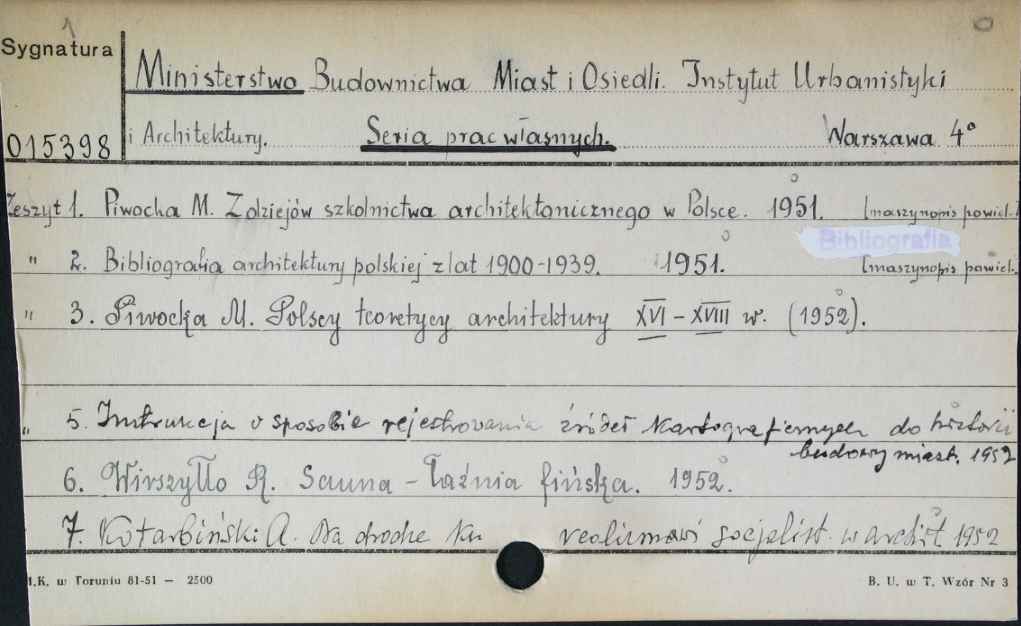 1
Sygnatura
Ministerstwo Budownictwa Miast i Osiedli. Instytut Urbanistyki
015398 i Architektury. Seria prac własnych. Warszawa 4°
Zeszyt 1. Piwocka M. Z dziejów szkolnictwa architektonicznego w Polsce. 1951. [maszynopis powiel.]
Bibliografia
" 2. Bibliografia architektury polskiej z lat 1900-1939. 1951. [maszynopis powiel.
" 3. Piwocka M. Polscy teoretycy architektury XVI - XVIII w. (1952).
" 5. Instrukcja o sposobie rejestrowania źródeł kartograficznych do historii
budowy miast. 1952
6. Wirszyłło R. Sauna - łaźnia fińska. 1952.
7. Kotarbiński A. Na drodze ku realizmowi socjalist. w archit 1952
.K. w Toruniu 81-51 — 2500 B. U. w T. Wzór Nr 3